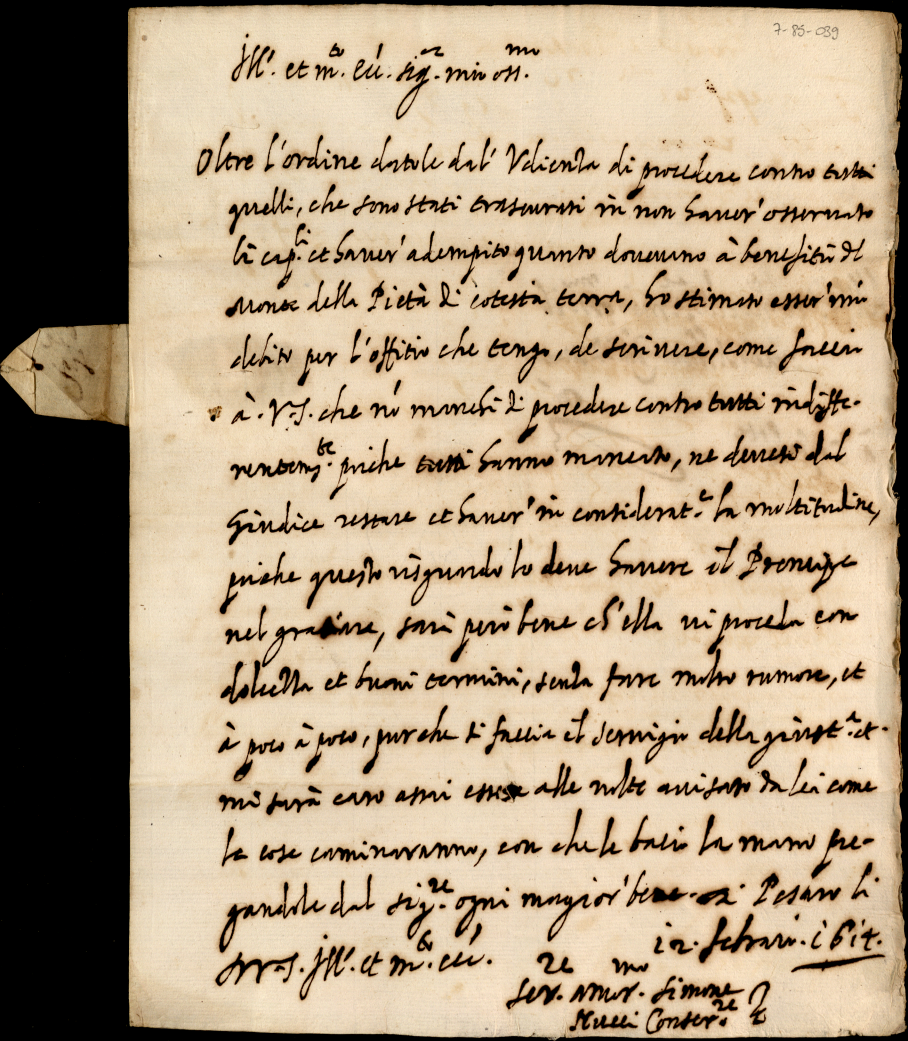 7-85-039
Ill.re et m.to ecc. sig.re mio oss.mo
Oltre l'ordine datole dal' Udienza di procedere contro tutti
quelli, che sono stati trascurati in non haver' osservato
li cap.li et haver' adempito quanto dovevano à benefitio del
Monte della Pietà di cotesta terra, ho stimato esser' mio
debito per l'offitio che tengo, de scrivere, come faccio
à V.S. che nõ manchi di procedere contro tutti indiffe-
rentem.te poiche tutti hanno mancato, ne devesi dal
Giudice restare et haver' in considerat.e la moltitudine,
poiche questo risguardo lo deve havere il Prencipe
nel gratiare, sarà però bene ch'ella vi proceda con
dolcezza et buoni termini, senza fare molto rumore, et
à poco à poco, pur che si faccia il servigio della giust.a et
mi sarà caro assai essere alle volte avisato da lei come
le cose caminaranno, con che le bacio la mano pre-
gandole dal sig.re ogni magior' bene. di Pesaro li
12. febraro. 1614.
D V.S. Ill. et m.to ecc.
ser.re amor.mo Simone
Conser.re